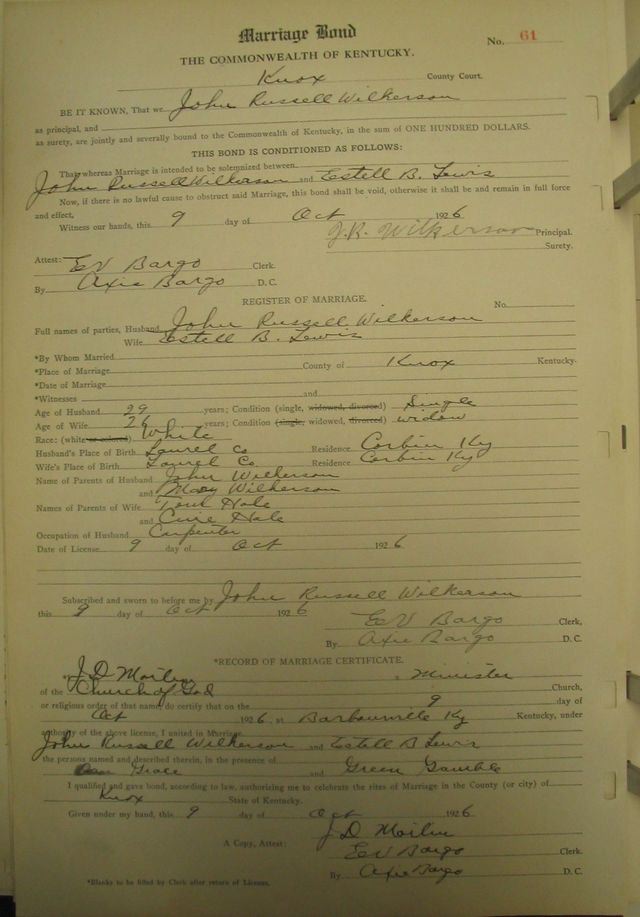 Marriage Bond
No. 61
THE COMMONWEALTH OF KENTUCKY.
Knox County Court.
BE IT KNOWN, That we John Russell Wilkerson
as principal, and
as surety, are jointly and severally bound to the Commonwealth of Kentucky, in the sum of ONE HUNDRED DOLLARS.
THIS BOND IS CONDITIONED AS FOLLOWS:
That whereas Marriage is intended to be solemnized between
John Russell Wilkerson and Estell B. Lewis
Now, if there is no lawful cause to obstruct said Marriage, this bond shall be void, otherwise it shall be and remain in full force
and effect,
Witness our hands, this 9 day of Oct 1926
J.R. Wilkerson Principal.
Surety.
Attest: EV Bargo Clerk.
By Axie Bargo D. C.
REGISTER OF MARRIAGE.
No.
Full names of parties, Husband John Russell Wilkerson
Wife Estell B. Lewis
*By Whom Married
*Place of Marriage County of Knox Kentucky.
*Date of Marriage
*Witnesses and
Age of Husband 29 years; Condition (single, widowed, divorced) Single
Age of Wife 26 years; Condition (single, widowed, divorced) widow
Race: (white or colored) White
Husband's Place of Birth Laurel Co Residence Corbin Ky
Wife's Place of Birth Laurel Co. Residence Corbin Ky
Name of Parents of Husband John Wilkerson
and Mary Wilkerson
Names of Parents of Wife Tom Hale
and Hale
Occupation of Husband Carpenter
Date of License 9 day of Oct 1926
Subscribed and sworn to before me by John Russell Wilkerson
this 9 day of Oct 1926
EV Bargo Clerk,
By Axie Bargo D. C.
*RECORD OF MARRIAGE CERTIFICATE.
J D a Minister
of the Church of God Church,
or religious order of that name, do certify that on the 9 day of
Oct 1926, at Barbourville Ky Kentucky, under
authority of the above license, I united in Marriage
John Russell Wilkerson and Estell B Lewis
the persons named and described therein, in the presence of
Grace and Green Gamble
I qualified and gave bond, according to law, authorizing me to celebrate the rites of Marriage in the County (or city) of
Knox State of Kentucky.
Given under my hand, this 9 day of Oct 1926
J D
A Copy, Attest: EV Bargo Clerk.
By Axie Bargo D. C.
*Blanks to be filled by Clerk after return of License.